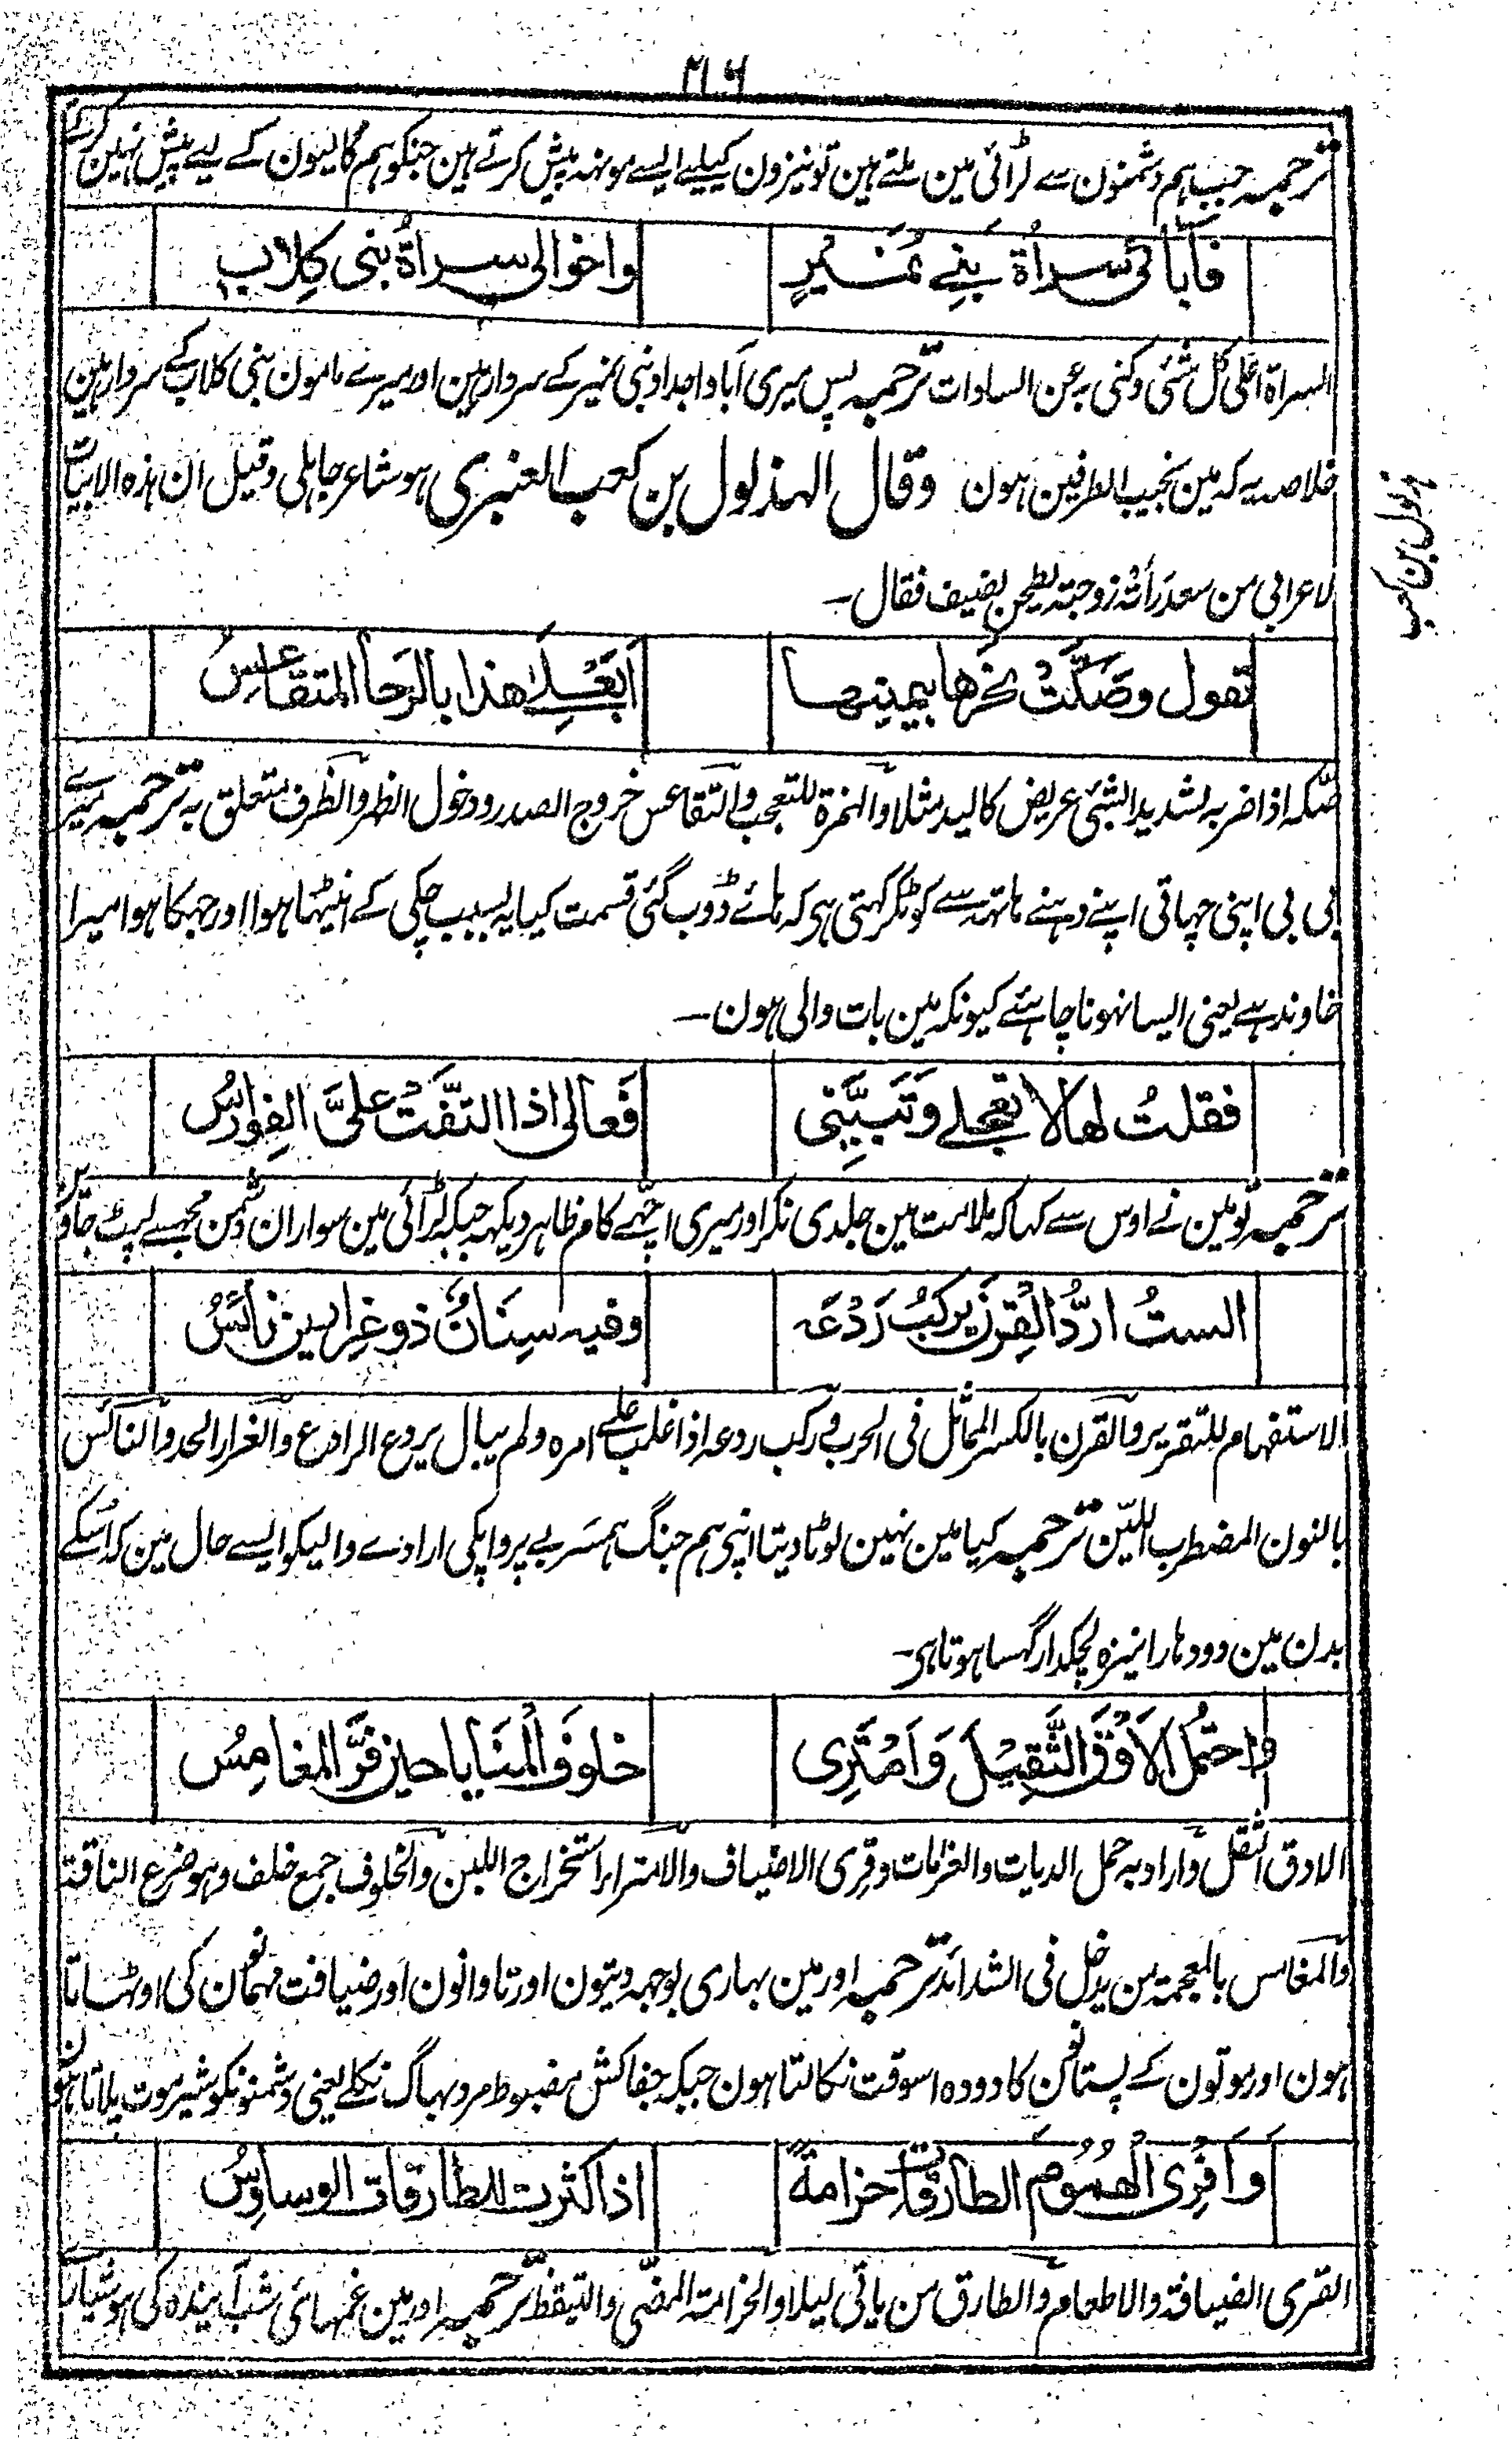 ۲۱۶
ترجمہ جب ہم دشمنون سے لڑائی مین ملتے ہین تو نیزون کیلیے ایسے مونہہ پیش کرتے ہین جنکو ہم گالیون کے لیے پیش نہین کرتے
فَآبائی سراۃ بنے نُمَیرٍ واخوالی سراۃُ بنی کِلاب
السراۃ اعلی کل شئی وکنی بہ عن السادات ترجمہ پس میری آبا و اجداد بنی نمیر کے سردار ہین اور میرے مامون بنی کلاب کے سردار ہین
خلاصہ یہ کہ مین نجیب الطرفین ہون وقال الہذلول بن کعب العنبری ہو شاعر جاہلی وقیل ان ہذہ الابیات
لاعرابی من سعد رأتہ زوجتہ یطحن لضیف فقال۔
ہذلول بن کعب
تقول وصَکَّتْ نحرھا بیمینھا اَبَعْلِےَ ھذا بالرَحا المتقاعِسُ
صکہ اذا ضربہ شدیدا بشئی عریض کالید مثلا والہمزۃ للتعجب والتقاعس خروج الصدر ودخول الظہر والظرف متعلق بہ ترجمہ میرے
بی بی اپنی چہاتی اپنے دہنے ہاتہہ سے کوٹکر کہتی ہی کہ ہائے ڈوب گئی قسمت کیا یہ بسبب چکی کے اینٹہا ہوا اور جہکا ہوا میرا
خاوند ہے یعنی ایسا نہونا چاہئے کیونکہ مین بات والی ہون۔
فقلتُ لھا لا تعجلے وَتَبَیَّنِی فَعالی اذا التفَّتْ علیَّ الفِوارسُ
ترجمہ تو مین نے اوس سے کہا کہ ملامت مین جلدی نکر اور میری اچّہے کام ظاہر دیکہہ جبکہ لڑائی مین سواران دشمن مجہسے لپٹ جاوین
الستُ اردُّ القِرنَ یرکبُ رَدْعَہ وفیہ سِنَانٌ ذو غِرارین نائسُ
الاستفہام للتقریر والقرن بالکسر المماثل فی الحرب ویرکب ردعہ اذا غلب علی امرہ ولم یبال بردع الرادع والغرار الحد والنائس
بالنون المضطرب اللیّن ترجمہ کیا مین نہین لوٹا دیتا اپنی ہم جنگ ہمسر بے پروا پکی ارادے والیکو ایسے حال مین کہ اسکے
بدن مین دودہارا نیزہ لچکدار گہسا ہوتا ہی۔
واحتمُل الاَوْقَ الثَّقِیْلَ وَاَمْتَرِی خلوفَ الْمنَایا حین فرَّ المغامِسُ
الاوق الثقل واراد بہ حمل الدیات والغرامات وقری الاضیاف والامتراء استخراج اللبن والخلوف جمع خلف وہو ضرع الناقۃ
والمغامس بالمعجمۃ من یدخل فی الشدائد ترجمہ اور مین بہاری بوجہہ دیتون اور تاوانون اور ضیافت مہمان کی اوٹہاتا
ہون اور موتون کے پستانون کا دودہ اسوقت نکالتا ہون جبکہ جفاکش مضبوط مرد بہاگ نکلے یعنی دشمنونکو شیر موت پلاتا ہون
واَقرِی الھمُومَ الطارقاتِ حزامۃً اذا کثرت للطارقات الوساوِسُ
القری الضیافۃ والاطعام والطارق من یاتی لیلا والحزامۃ المضّی والتیقظ ترجمہ اور مین غمہائی شب آیندہ کی ہوشیاری